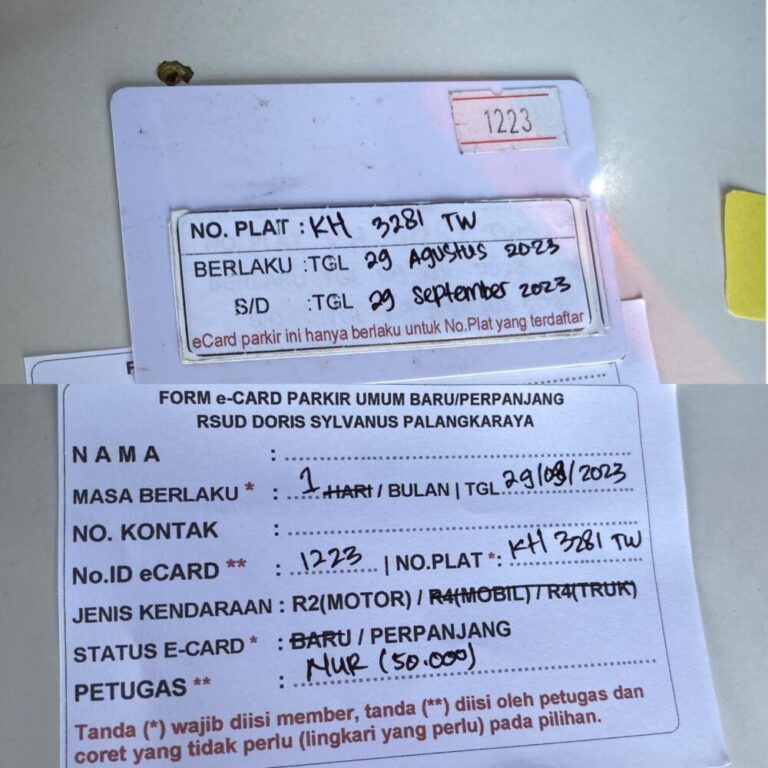 1223
NO. PLAT : KH 3281 TW
BERLAKU :TGL 29 AGUSTUS 2023
S/D :TGL 29 September 2023
eCard parkir ini hanya berlaku untuk No.Plat yang terdaftar
FORM e-CARD PARKIR UMUM BARU/PERPANJANG
RSUD DORIS SYLVANUS PALANGKARAYA
NAMA :
MASA BERLAKU * : 1 HARI / BULAN | TGL 29/09/2023
NO. KONTAK :
No.ID eCARD ** : 1223 | NO.PLAT *: KH 3281 TW
JENIS KENDARAAN : R2(MOTOR) / R4(MOBIL) / R4(TRUK)
STATUS E-CARD * : BARU / PERPANJANG
PETUGAS ** : NUR (50.000)
Tanda (*) wajib diisi member, tanda (**) diisi oleh petugas dan
coret yang tidak perlu (lingkari yang perlu) pada pilihan.